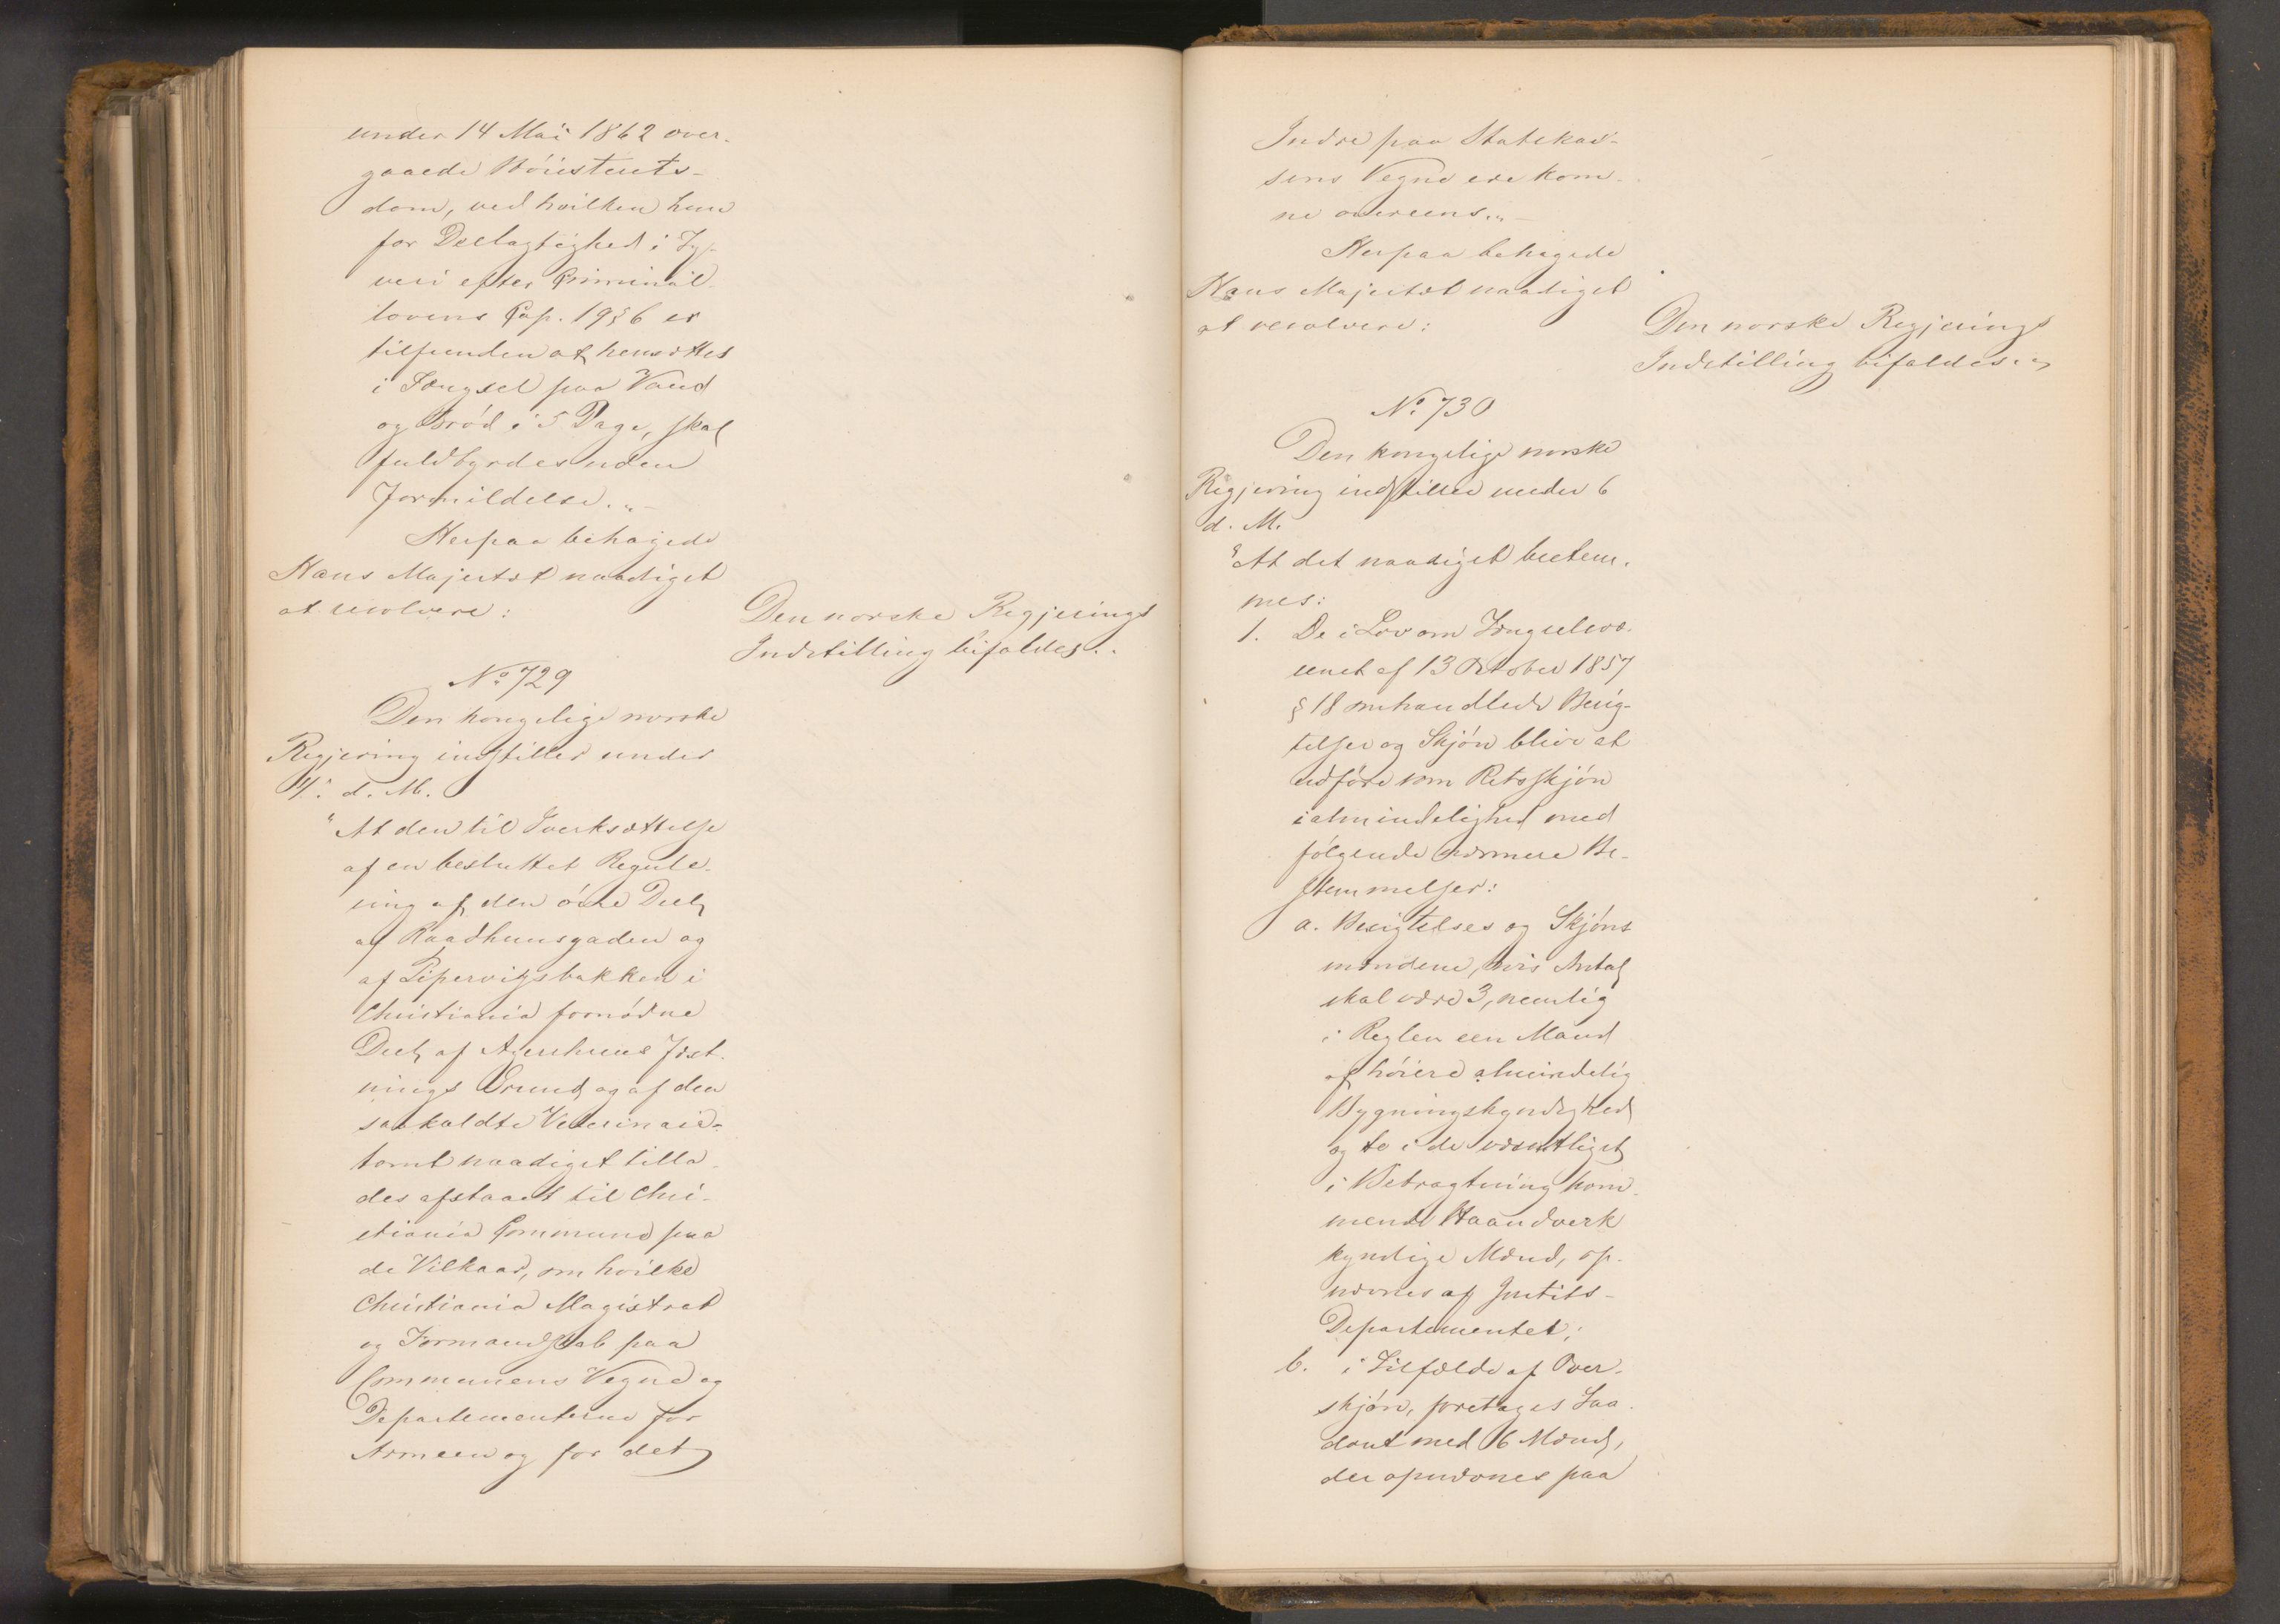 under 14 Mai 1862 over-
gaaede Höiesterets-
dom, ved hvilken hun
for Deelagtighed i Ty-
veri efter Criminal-
lovens Cap. 19 § 6 er
tilfunden at hensættes
i Fængsel paa Vand
og Bröd i 5 Dage, skal
fuldbyrdes uden
Formildelse."
Herpaa behagede
Hans Majestæt naadigst
at resolvere:
Den norske Regjerings
Indstilling bifaldes.
No 729
Den kongelige norske
Regjering indstiller under
4. d. M.
"At den til Iverksættelse
af en besluttet Regule-
ring af den övre Deel
af Raadhuusgaden og
af Pipervigsbakken i
Christiania fornödne
Deel af Agershuus Fæst-
nings Grund og af den
saakaldte Veterinair-
tomt naadigst tilla-
des afstaaet til Chri-
stiania Commune paa
de Vilkaar, om hvilke
Christiania Magistrat
og Formandskab paa
Communens Vegne og
Departementerne for
Armeen og for det
Indre paa Statskas-
sens Vegne ere kom-
ne overeens."
Herpaa behagede
Hans Majestæt naadigst
at resolvere:
Den norske Regjerings
Indstilling bifaldes.
No 730
Den kongelige norske
Regjering indstiller under 6
d. M.
"At det naadigst bestem-
mes:
1. De i Lov om Fængselsvæ-
senet af 13 October 1857
§ 18 omhandlede Besig-
telser og Skjön blive at
udföre som Retsskjön
i almindelighed med
fölgende nærmere Be-
stemmelser:
a. Besigtelses og Skjöns
mændene, hvis Antal
skal være 3, nemlig
i Reglen een Mand
af höiere almindelig
Bygningskyndighed
og to i de væsentligst
i Betragtning kom-
mende Haandverk
kyndige Mænd, op-
nævnes af Justits-
Departementet;
b. i Tilfælde af Over-
skjön, foretages Saa-
dant med 6 Mænd,
der opnævnes paa